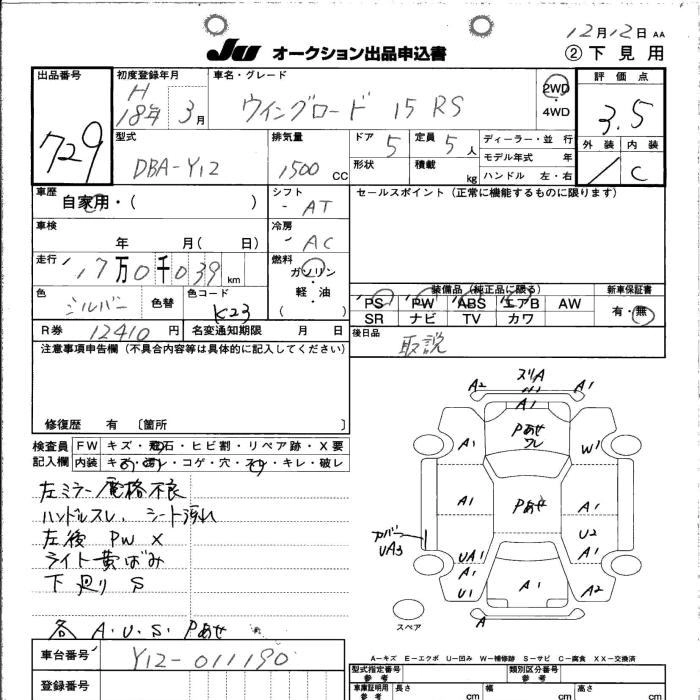 12月12日 AA
JU オークション出品申込書
② 下見用
出品番号
729
初度登録年月
H 18年 3月
車名・グレード
ウイングロード 15 RS
2WD
・
4WD
評価点
3.5
外装 内装
/ C
型式
DBA-Y12
排気量
1500 CC
ドア 5
定員 5人
形状
積載 kg
ディーラー・並行
モデル年式 年
ハンドル 左・右
車歴
自家用・( )
シフト
- AT
セールスポイント(正常に機能するものに限ります)
車検
年 月( 日)
冷房
- AC
走行
17万0千039km
燃料
ガソリン
軽・油
色
シルバー
色替
色コード
K23
装備品(純正品に限る)
PS PW ABS エアB AW
SR ナビ TV カワ
新車保証書
有・無
R券 12410円
名変通知期限 月 日
後日品
取説
注意事項申告欄(不具合内容等は具体的に記入してください)
修復歴 有 〔箇所 〕
検査員記入欄
FW キズ・飛石・ヒビ割・リペア跡・X要
内装 キズ・コゲ・穴・キレ・破レ
左ミラー電格不良
ハンドルスレ、シート汚れ
左後 PW X
ライト黄ばみ
下廻り S
各 A.U.S. Pあせ
A2 スリA A1
A1
A1 Pあせ ワレ W1
A1 Pあせ A1
カバー UA3
U2
UA1 A1
A1
U1 A1 A2
A
スペア
A-キズ E-エクボ U-凹み W-補修跡 S-サビ C-腐食 XX-交換済
車台番号
Y12-011190
登録番号
型式指定番号 参考
類別区分番号 参考
車庫証明用 参考
長さ cm 幅 cm 高さ cm